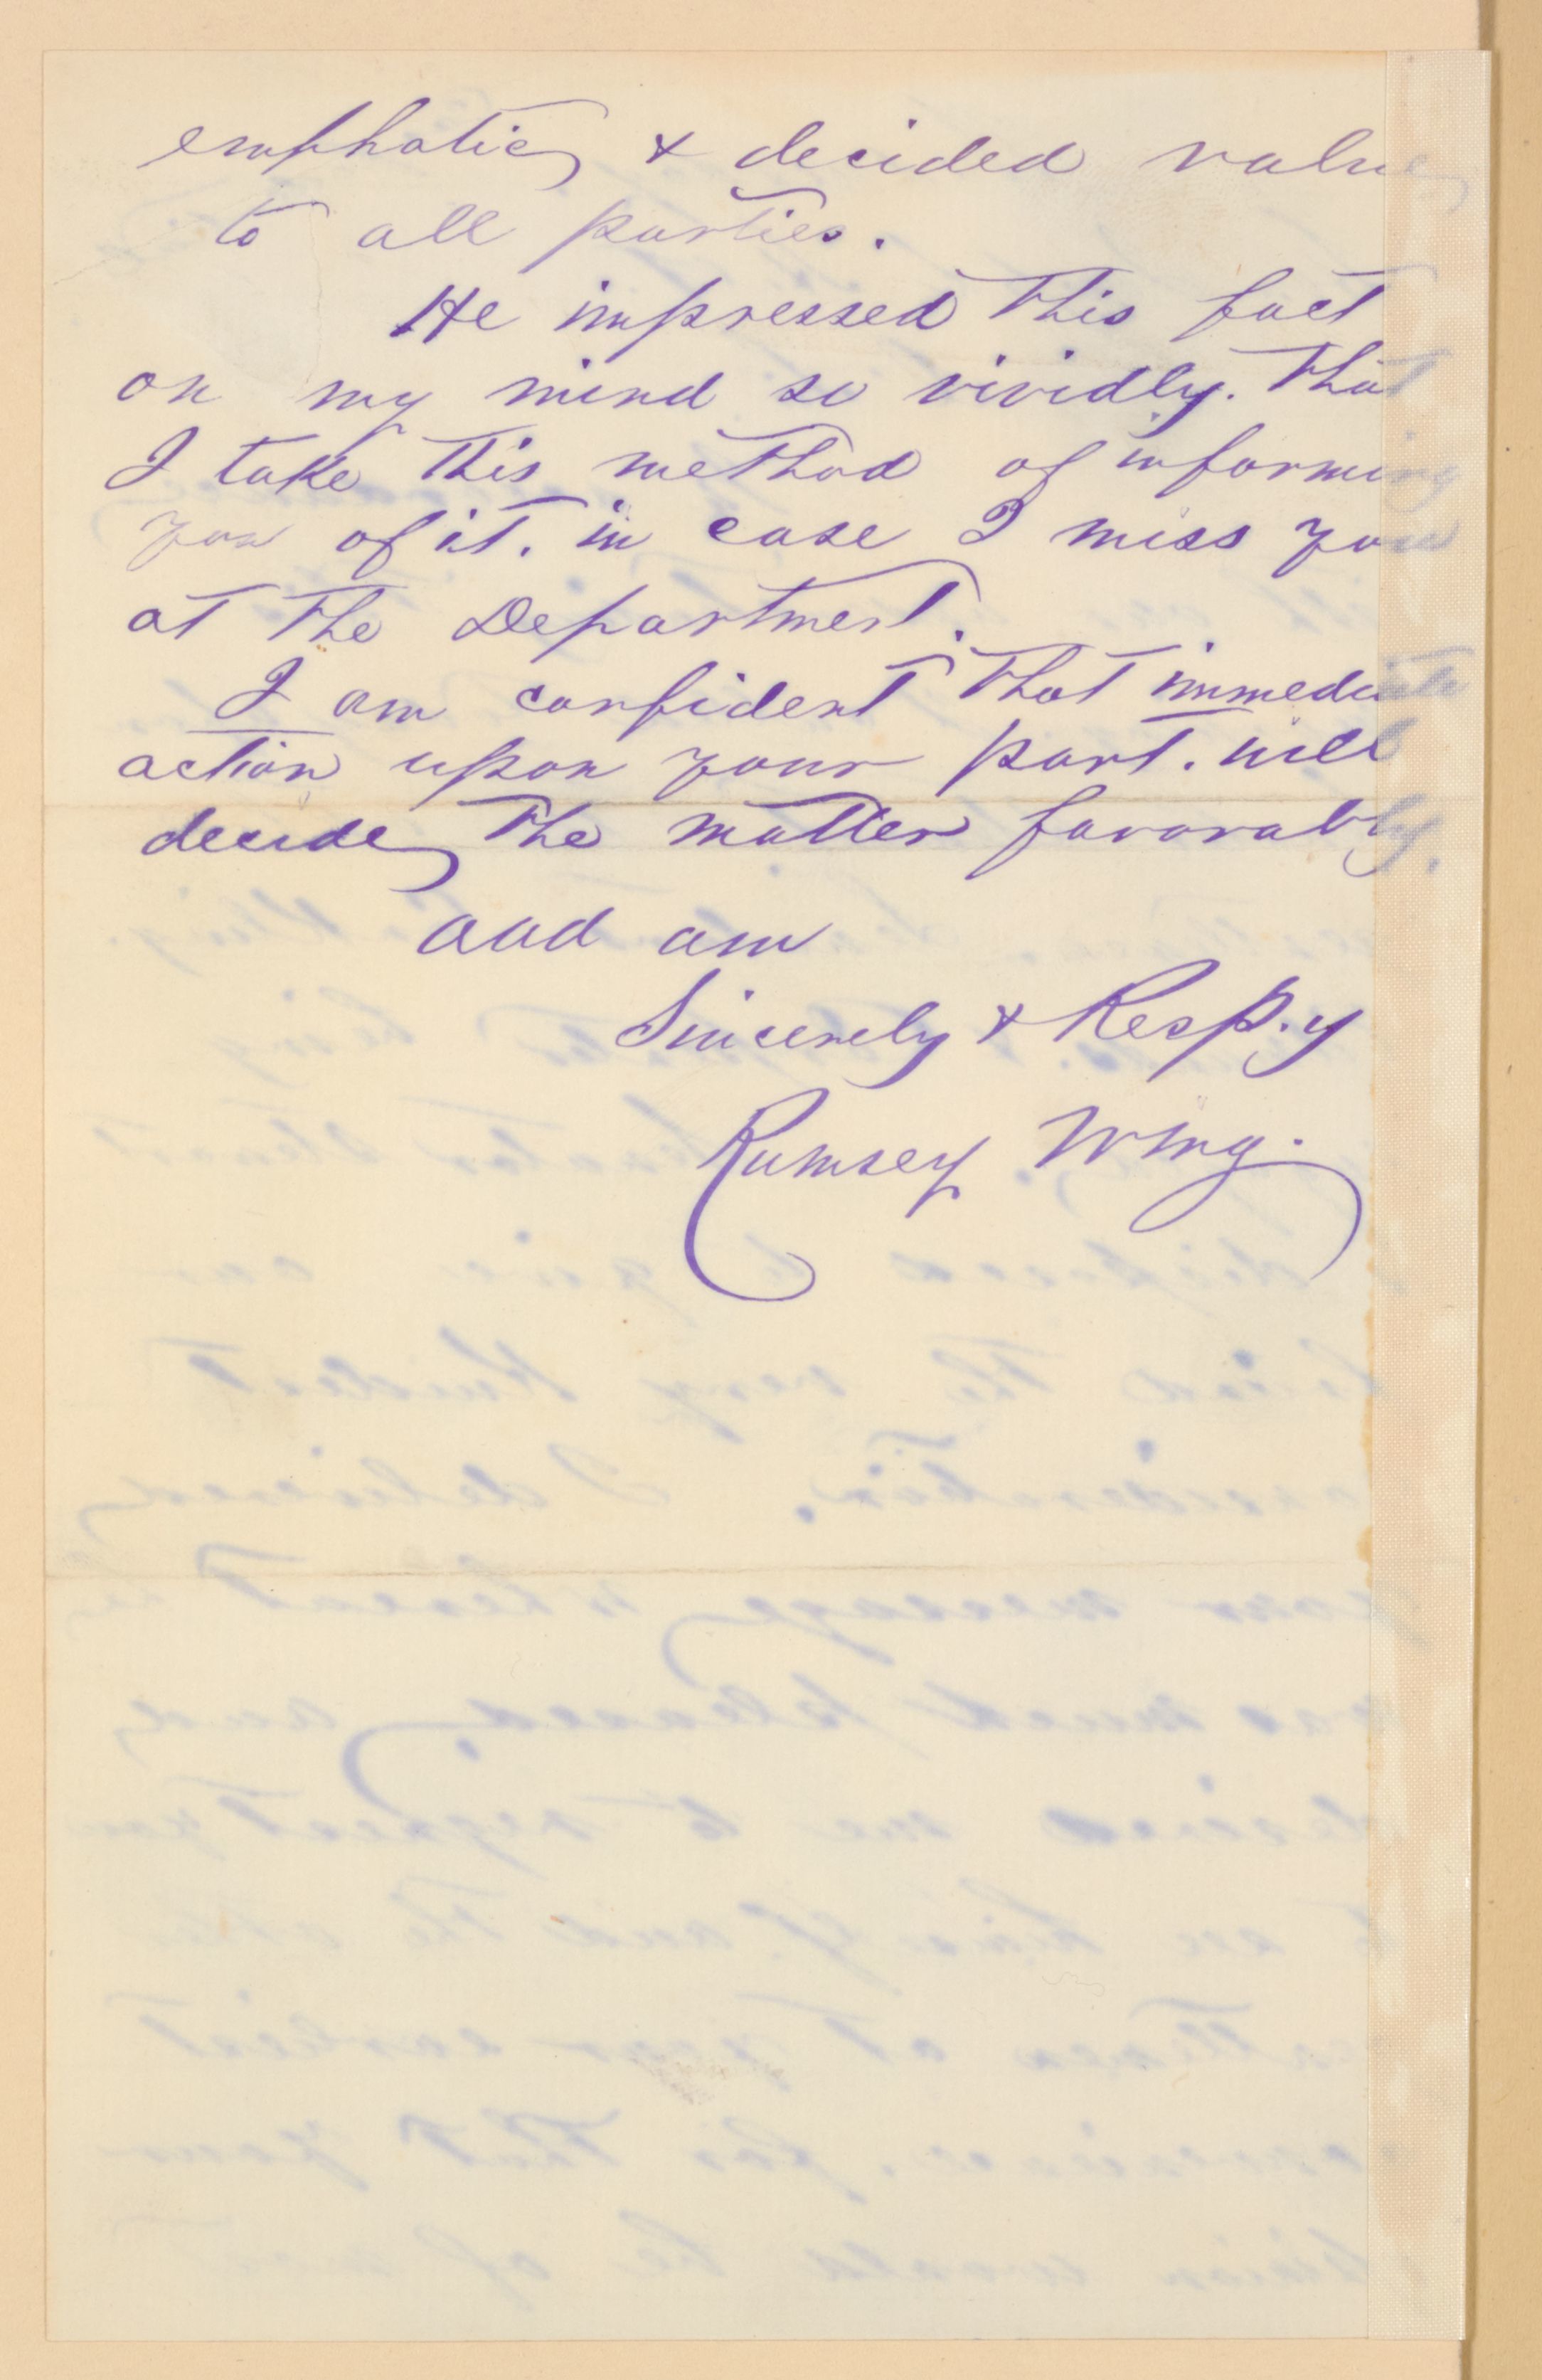 emphatic & decided value
to all parties.
He impressed this fact
on my mind so vividly. that
I take this method of informing
you of it. in case I miss you
at the Department.
I am confident that immediate
action upon your part. will
decide the matter favorably.
and am
Sincerely & Resp.y
Rumsey Wing.